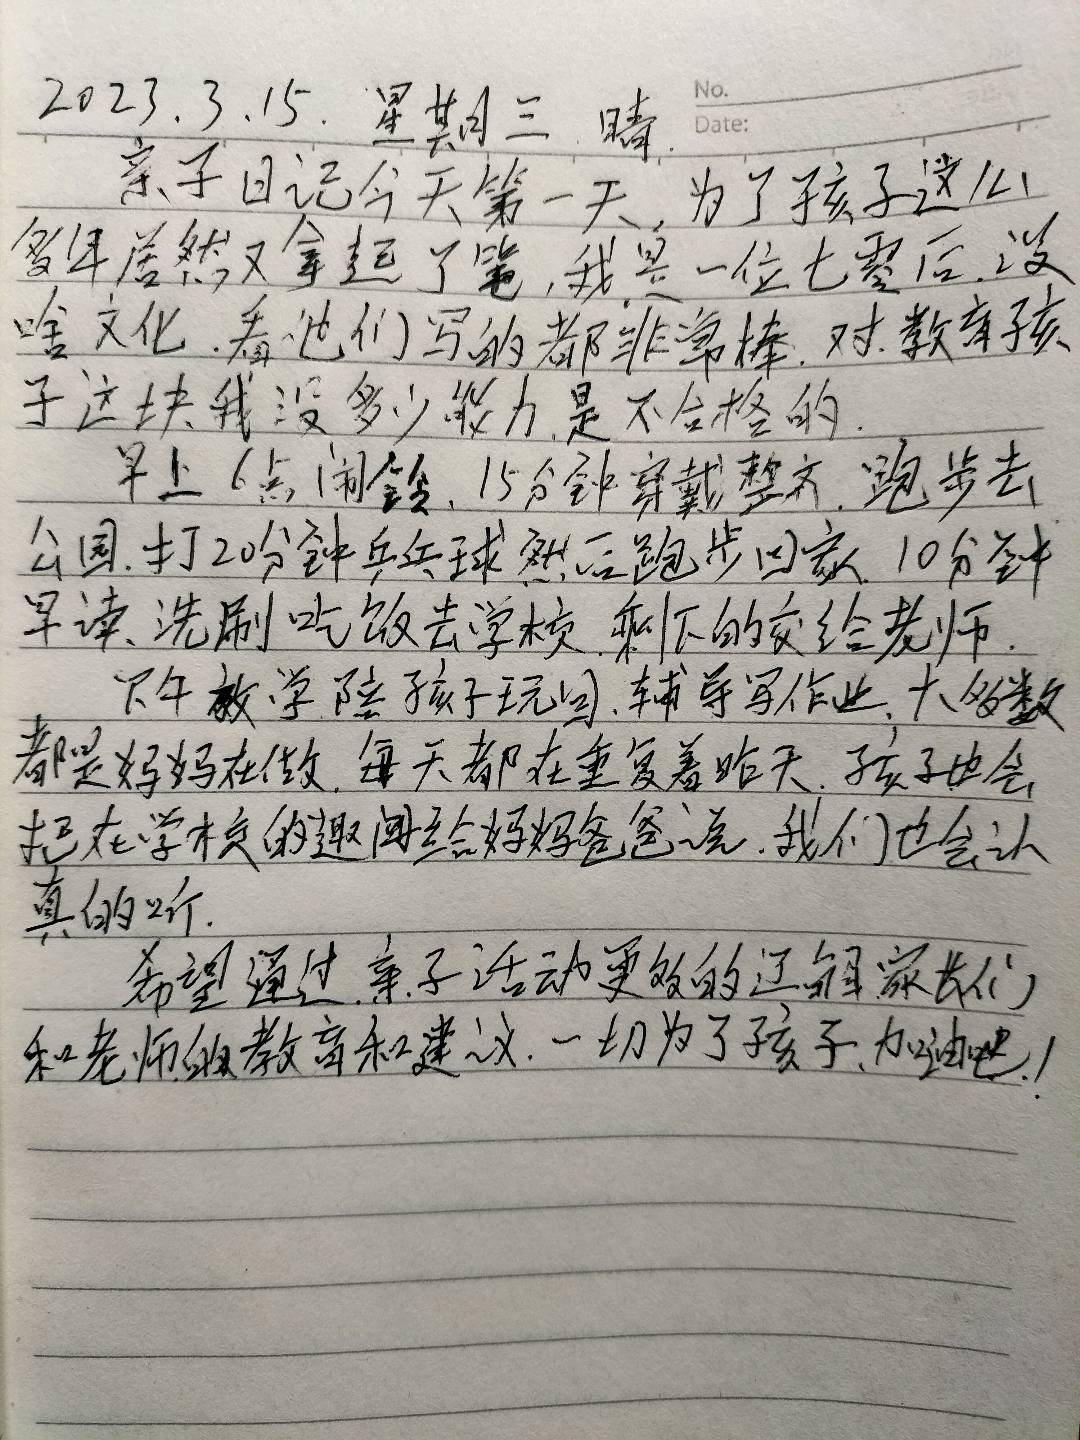 No.
Date:
2023.3.15. 星期三 晴.
亲子日记今天第一天,为了孩子这么
多年居然又拿起了笔,我是一位七零后.没
啥文化.看他们写的都非常棒.对教育孩
子这块我没多少能力.是不合格的.
早上6点闹铃.15分钟穿戴整齐.跑步去
公园.打20分钟乒乓球然后跑步回家.10分钟
早读.洗刷吃饭去学校.剩下的交给老师.
下午放学陪孩子玩会.辅导写作业.大多数
都是妈妈在做.每天都在重复着昨天.孩子也会
把在学校的趣闻给妈妈爸爸说.我们也会认
真的听.
希望通过亲子活动更多的了解家长们
和老师的教育和建议.一切为了孩子.加油吧!